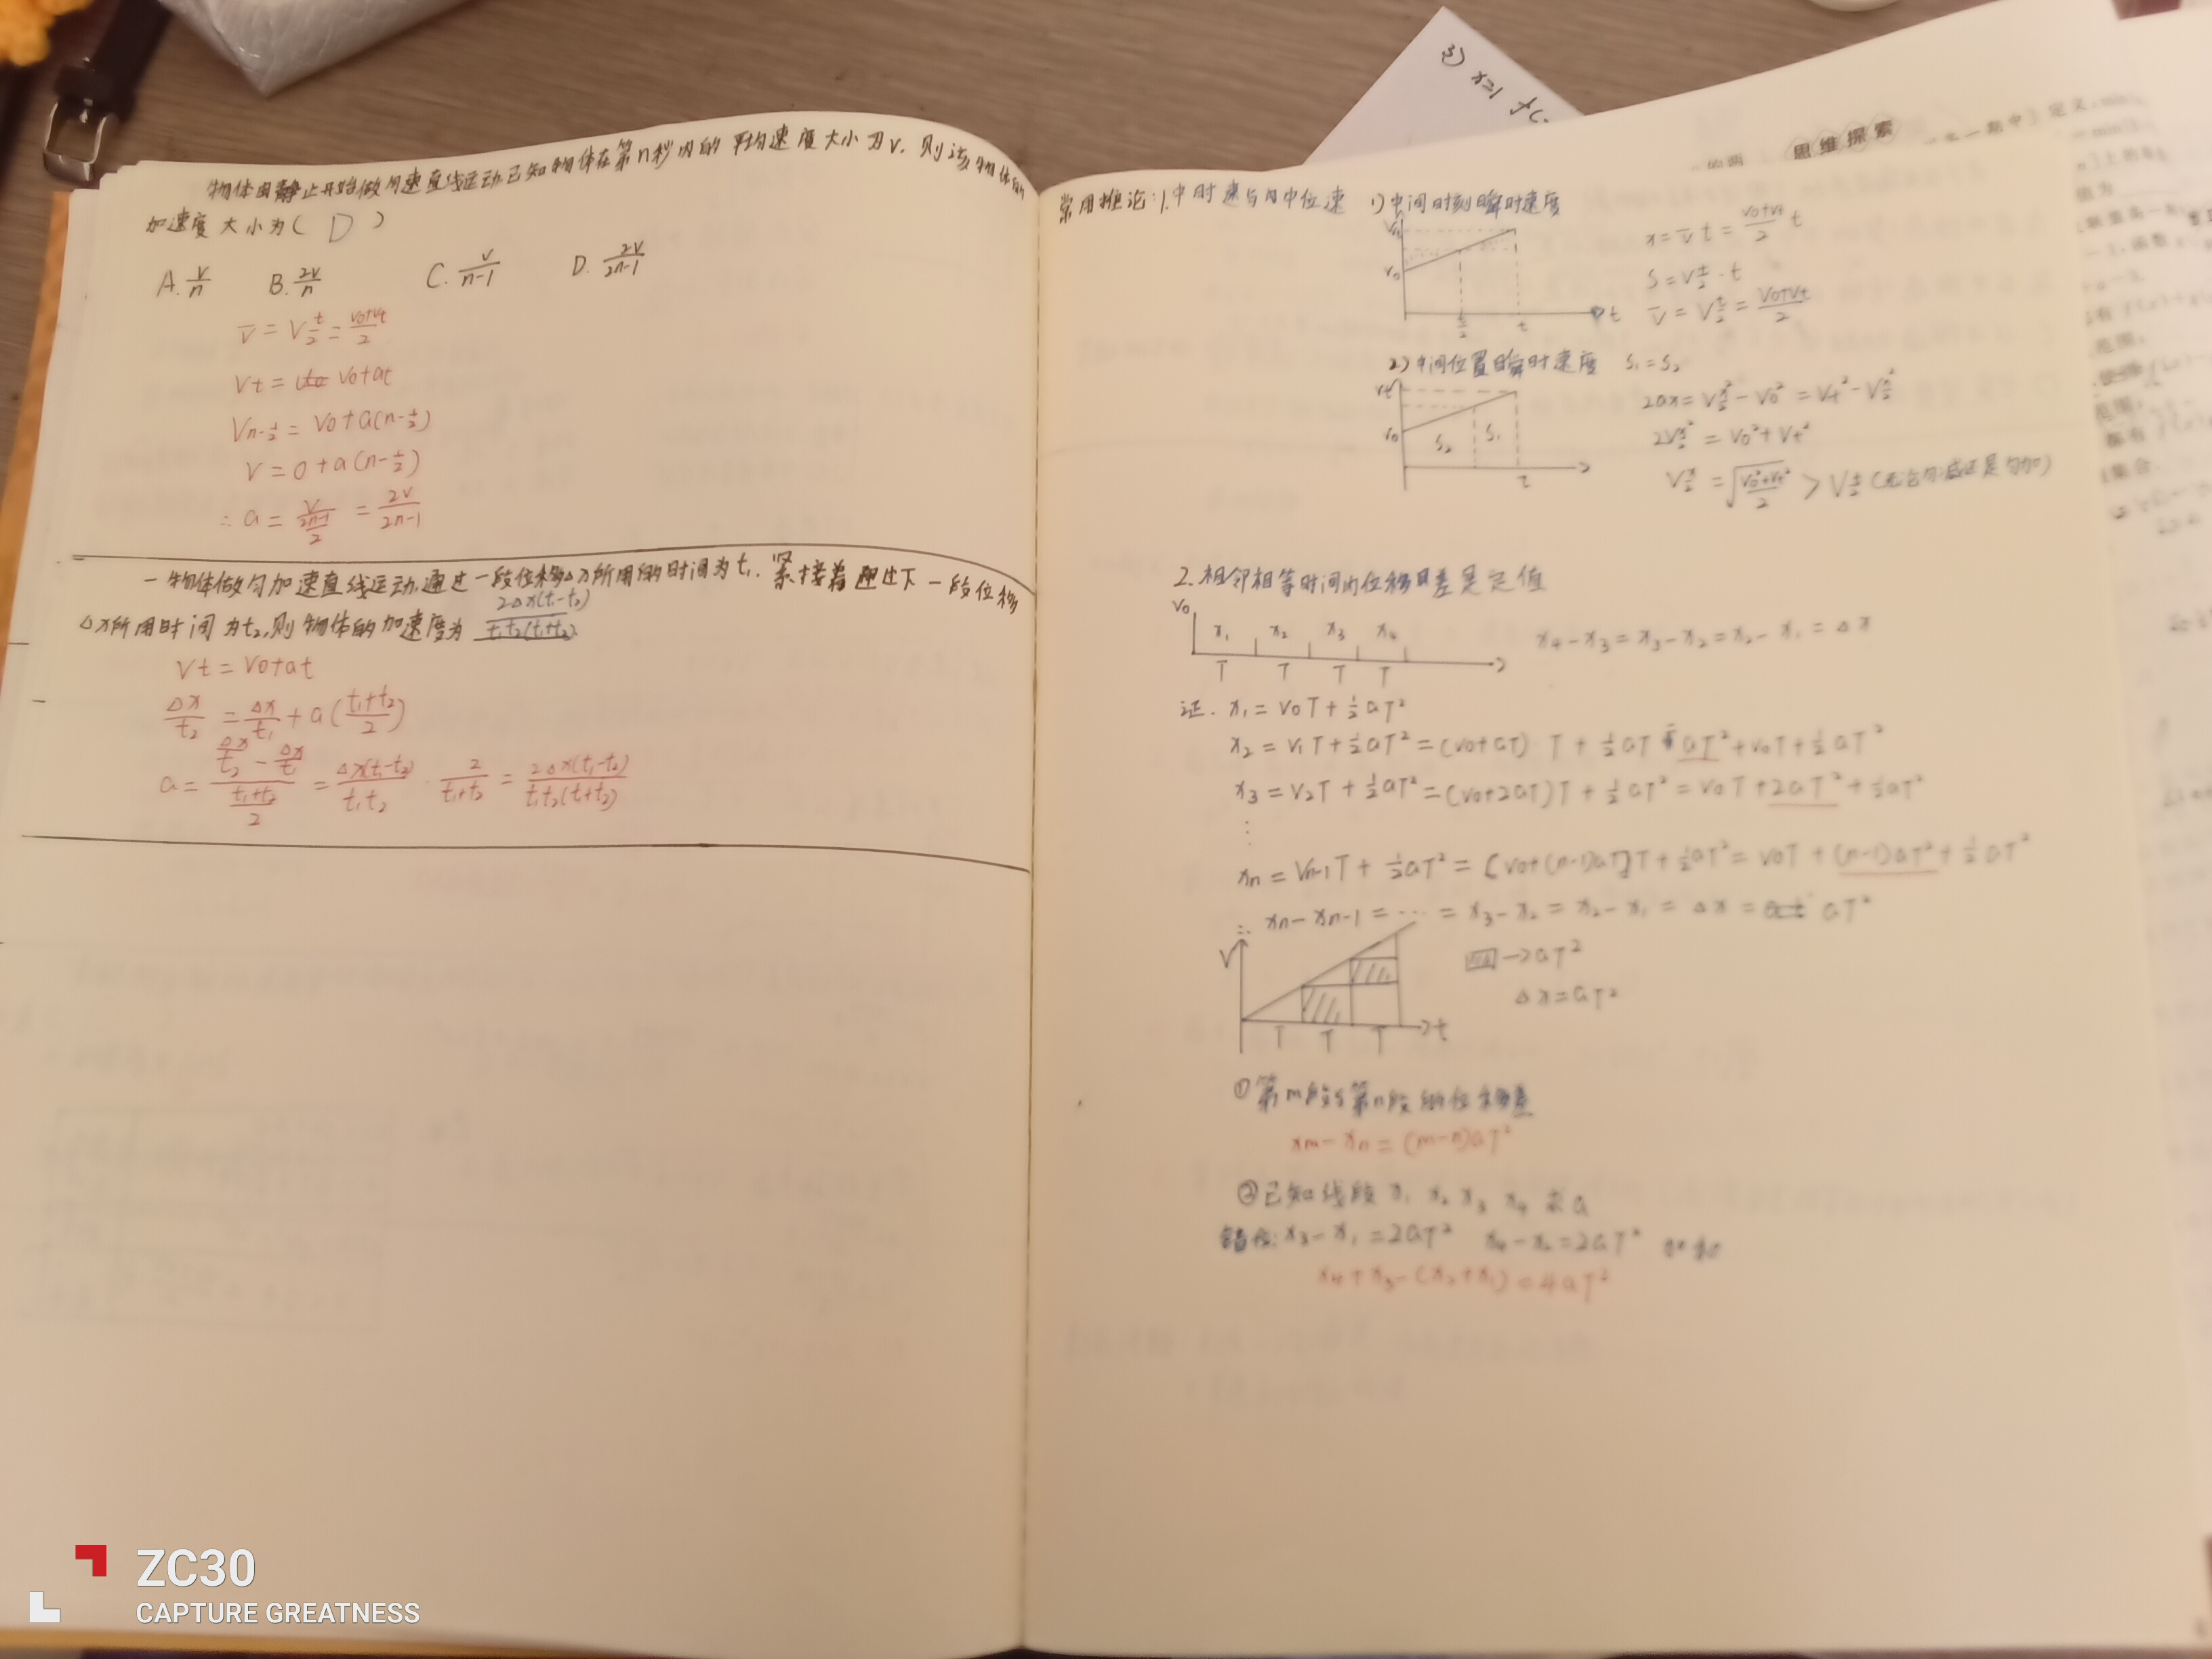 物体由静止开始做匀速直线运动,已知物体在第n秒内的平均速度大小为v,则该物体的
加速度大小为( D )
A. v/n B. 2v/n C. v/(n-1) D. 2v/(2n-1)
v̄ = V t/2 = (v0+vt)/2
Vt = v0+at
Vn-1/2 = V0+a(n-1/2)
V = 0+a(n-1/2)
∴ a = v/((2n-1)/2) = 2v/(2n-1)
一物体做匀加速直线运动,通过一段位移△x所用的时间为t₁.紧接着通过下一段位移
△x所用时间为t₂,则物体的加速度为 2△x(t₁-t₂)/t₁t₂(t₁+t₂).
Vt = V0+at
△x/t₂ = △x/t₁ + a((t₁+t₂)/2)
a = (△x/t₂ - △x/t₁)/((t₁+t₂)/2) = △x(t₁-t₂)/t₁t₂ · 2/(t₁+t₂) = 2△x(t₁-t₂)/t₁t₂(t₁+t₂)
ZC30
CAPTURE GREATNESS
3) x=1 f(
思维探索
常用推论: 1.中时速与中位速 1)中间时刻瞬时速度
x = v̄t = (v0+vt)/2 t
S = V t/2 · t
v̄ = V t/2 = (V0+Vt)/2
v0 t/2 t t
2)中间位置瞬时速度 S₁=S₂
Vt v0 S₂ S₁ t
2ax = V x/2² - V0² = Vt² - V x/2²
2V x/2² = V0²+Vt²
V x/2 = √((V0²+Vt²)/2) > V t/2 (无论匀减还是匀加)
2.相邻相等时间内位移之差是定值
V0 x₁ x₂ x₃ x₄
T T T T
x₄-x₃=x₃-x₂=x₂-x₁=△x
证. x₁ = V0T+½aT²
x₂ = V₁T+½aT² = (V0+aT)·T+½aT = aT²+V0T+½aT²
x₃ = V₂T+½aT² = (V0+2aT)T+½aT² = V0T+2aT²+½aT²
⋮
xn = Vn-1T+½aT² = [V0+(n-1)aT]T+½aT² = V0T+(n-1)aT²+½aT²
∴ xn-xn-1 = … = x₃-x₂ = x₂-x₁ = △x = aT²
V T T T t
→aT²
△x=aT²
①第m段与第n段的位移差
xm-xn=(m-n)aT²
②已知线段 x₁ x₂ x₃ x₄ 求a
错位: x₃-x₁=2aT² x₄-x₂=2aT²
x₄+x₃-(x₂+x₁)=4aT²